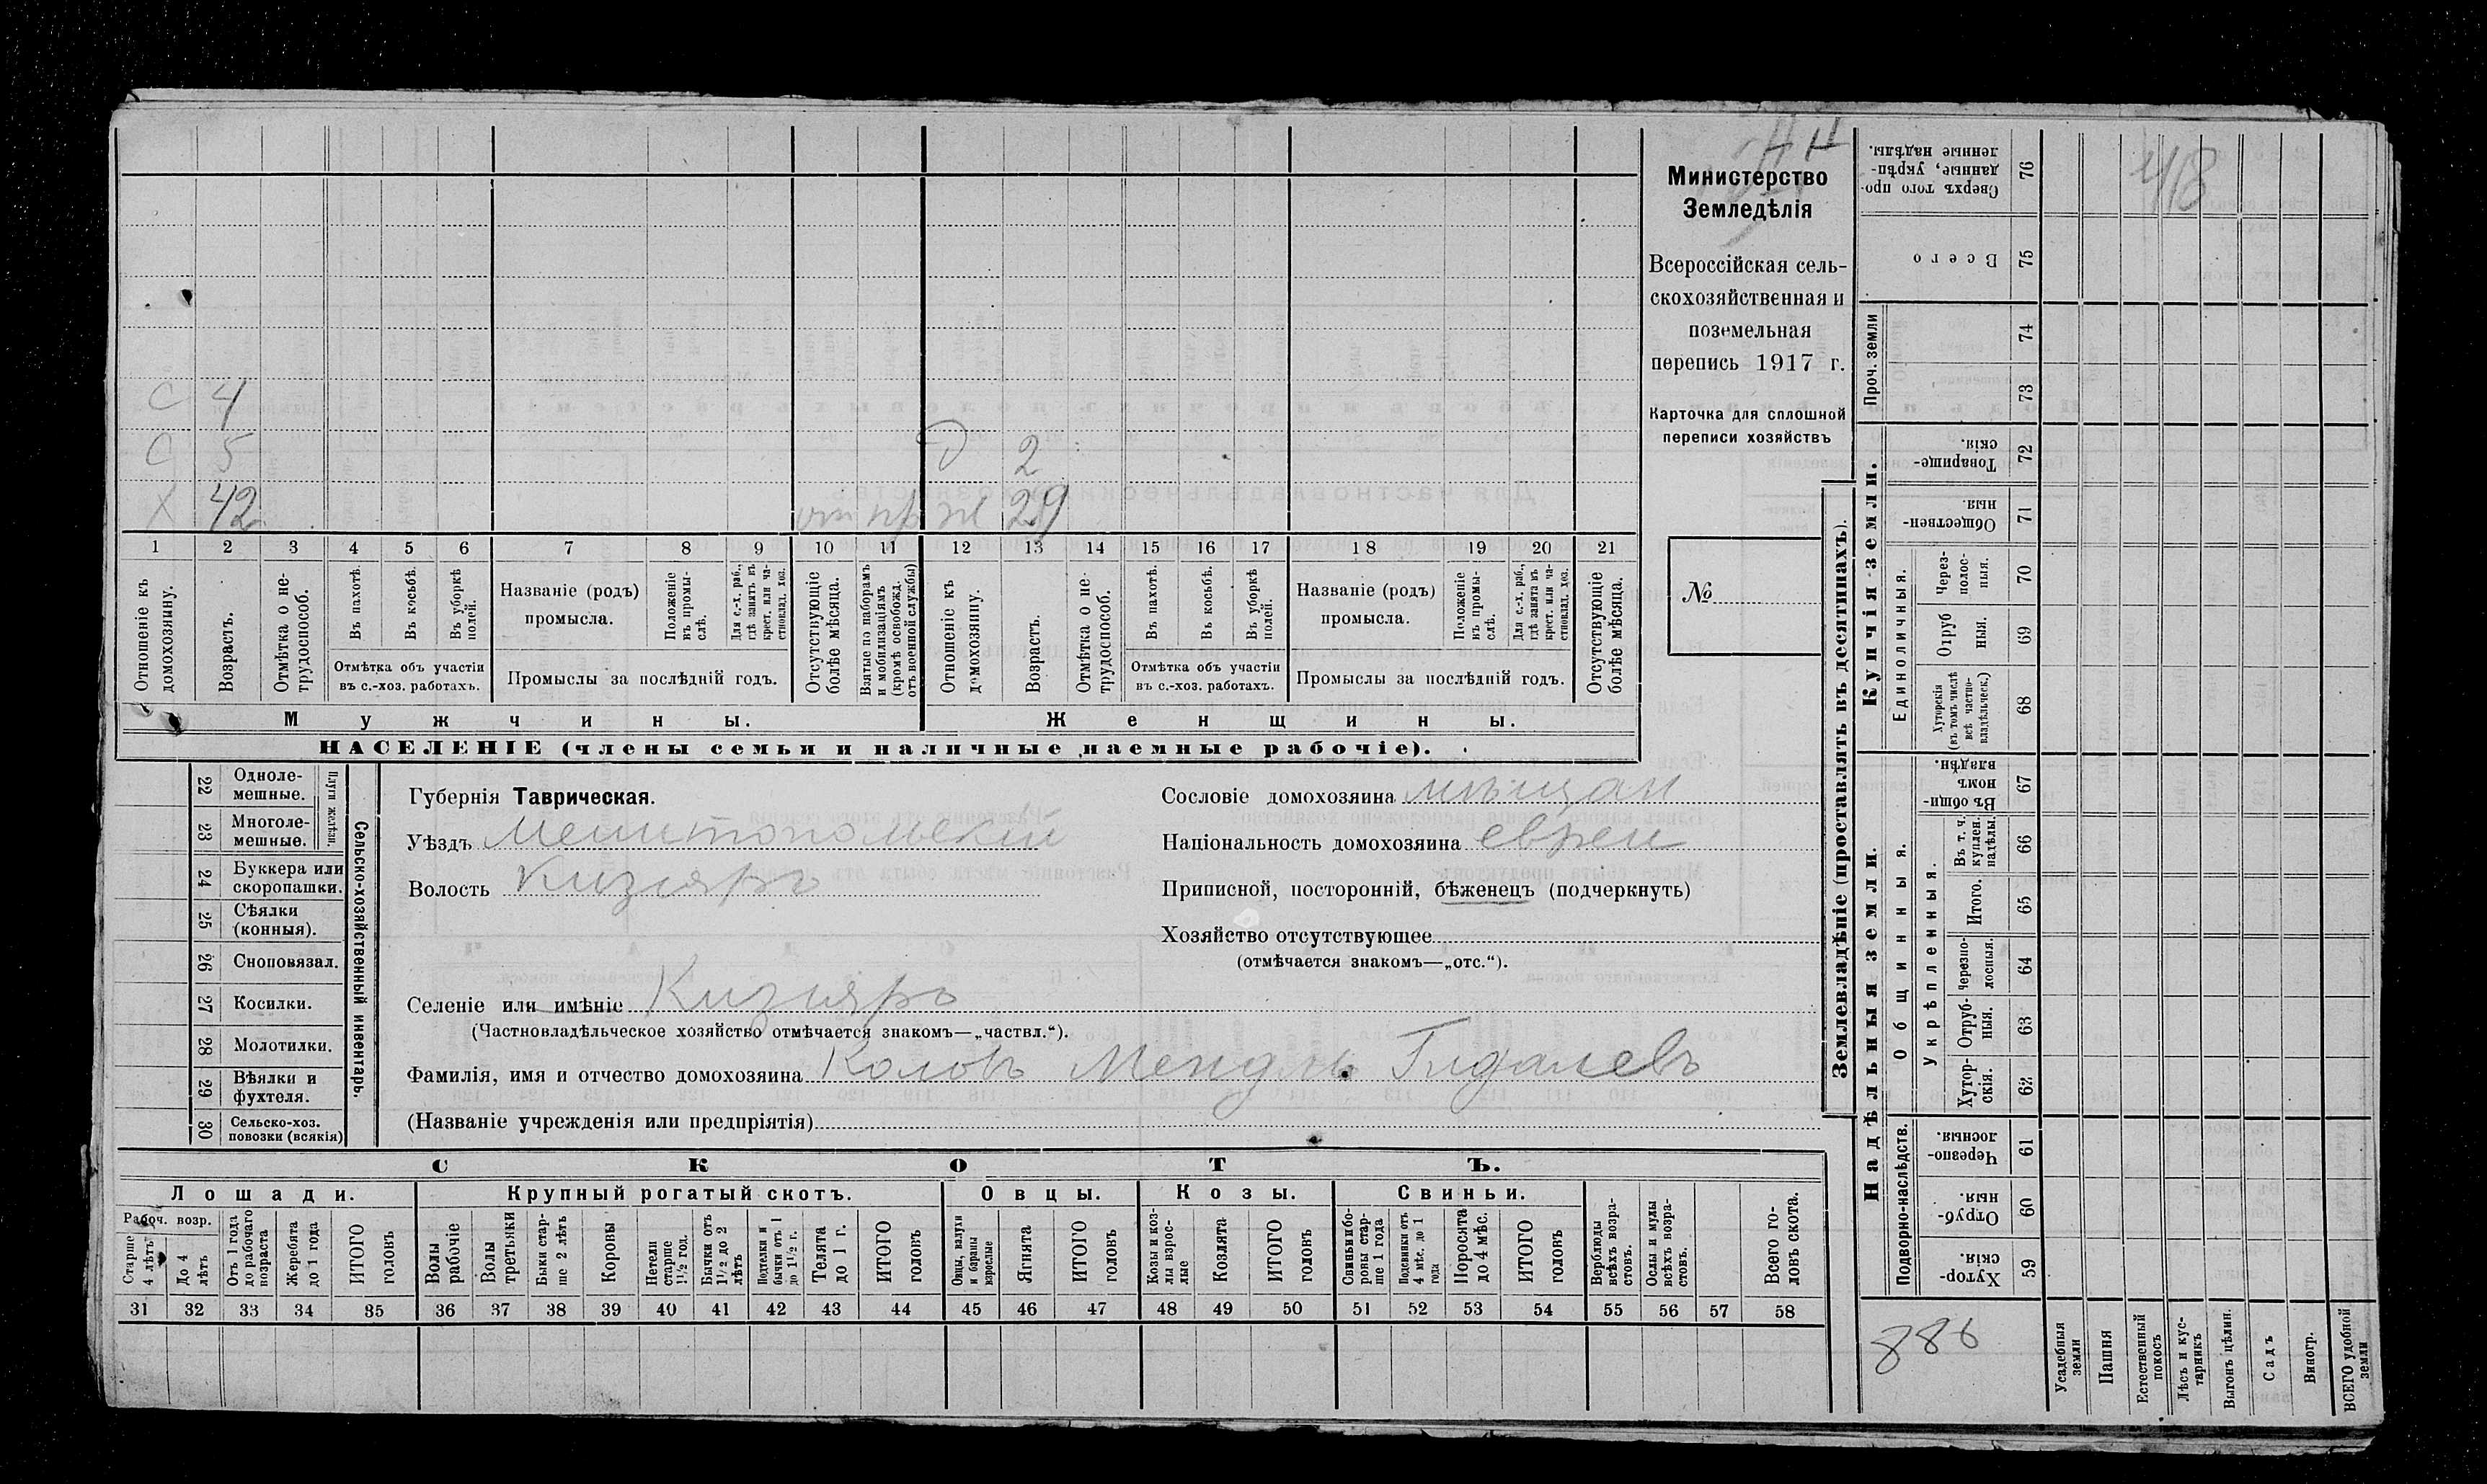 С 4
С 5 Д 2
Х 42 отпр ж 29
1 2 3 4 5 6 7 8 9 10 11 12 13 14 15 16 17 18 19 20 21
Отношеніе къ домохозяину.
Возрастъ.
Отмѣтка о не-трудоспособ.
Въ пахотѣ.
Въ косьбѣ.
Въ уборкѣ полей.
Отмѣтка объ участіи въ с.-хоз. работахъ.
Названіе (родъ) промысла.
Положеніе въ промы-слѣ.
Для с.-х. раб., гдѣ занятъ въ крест. или ча-стновлад. хоз.
Промыслы за послѣдній годъ.
Отсутствующіе болѣе мѣсяца.
Взятые по наборамъ и мобилизаціямъ (кромѣ освобожд. отъ военной службы)
Отношеніе къ домохозяину.
Возрастъ.
Отмѣтка о не-трудоспособ.
Въ пахотѣ.
Въ косьбѣ.
Въ уборкѣ полей.
Отмѣтка объ участіи въ с.-хоз. работахъ.
Названіе (родъ) промысла.
Положеніе въ промы-слѣ.
Для с.-х. раб., гдѣ занята въ крест. или ча-стновлад. хоз.
Промыслы за послѣдній годъ.
Отсутствующіе болѣе мѣсяца.
Мужчины.
Женщины.
НАСЕЛЕНІЕ (члены семьи и наличные наемные рабочіе).
Министерство
Земледѣлія
Всероссійская сель-
скохозяйственная и
поземельная
перепись 1917 г.
Карточка для сплошной
переписи хозяйствъ
№
22 Одноле-мешные.
23 Многоле-мешные.
Плуги желѣзн.
24 Буккера или скоропашки.
25 Сѣялки (конныя).
26 Сноповязал.
27 Косилки.
28 Молотилки.
29 Вѣялки и фухтеля.
30 Сельско-хоз. повозки (всякія)
Сельско-хозяйственный инвентарь.
Губернія Таврическая.
Уѣздъ Мелитопольскій
Волость Кизіяръ
Сословіе домохозяина мѣщан
Національность домохозяина евреи
Приписной, посторонній, бѣженецъ (подчеркнуть)
Хозяйство отсутствующее
(отмѣчается знакомъ—„отс.“).
Селеніе или имѣніе Кизіяръ
(Частновладѣльческое хозяйство отмѣчается знакомъ—„частвл.“).
Фамилія, имя и отчество домохозяина Коловъ Мендль Гидалевъ
(Названіе учрежденія или предпріятія)
СКОТЪ.
Лошади.
Крупный рогатый скотъ.
Овцы.
Козы.
Свиньи.
Рабоч. возр.
Старше 4 лѣтъ
До 4 лѣтъ
Отъ 1 года до рабочаго возраста
Жеребята до 1 года
ИТОГО головъ
Волы рабочіе
Волы третьяки
Быки стар-ше 2 лѣтъ
Коровы
Нетели старше 1½ год.
Бычки отъ 1½ до 2 лѣтъ
Подтелки и бычки отъ 1 до 1½ г.
Телята до 1 г.
ИТОГО головъ
Овцы, валухи и бараны взрослые
Ягнята
ИТОГО головъ
Козы и коз-лы взрос-лые
Козлята
ИТОГО головъ
Свиньи и бо-ровы стар-ше 1 года
Подсвинки отъ 4 мѣс. до 1 года
Поросята до 4 мѣс.
ИТОГО головъ
Верблюды всѣхъ возра-стовъ.
Ослы и мулы всѣхъ возра-стовъ.
Всего го-ловъ скота.
31 32 33 34 35 36 37 38 39 40 41 42 43 44 45 46 47 48 49 50 51 52 53 54 55 56 57 58
Землевладѣніе (проставлять въ десятинахъ).
Сверхъ того про-данные, укрѣп-ленные надѣлы. 76
418
Всего 75
Проч. земли
74
73
Купчія земли.
Товарище-скія. 72
Обществен-ныя. 71
Единоличныя.
Через-полос-ныя. 70
Отруб-ныя. 69
Хуторскія (въ томъ числѣ всѣ частно-владѣльческ.) 68
Надѣльныя земли.
Общинныя.
Въ общин-номъ владѣн. 67
Укрѣпленныя.
Въ т. ч. куплен. надѣлы. 66
Итого. 65
Черезпо-лосныя. 64
Отруб-ныя. 63
Хутор-скія. 62
Подворно-наслѣдств.
Черезпо-лосныя. 61
Отруб-ныя 60
Хутор-скія. 59
886
Усадебныя земли
Пашня
Естественный покосъ
Лѣсъ и кус-тарникъ
Выгонъ цѣлин.
Садъ
Виногр.
ВСЕГО удобной земли